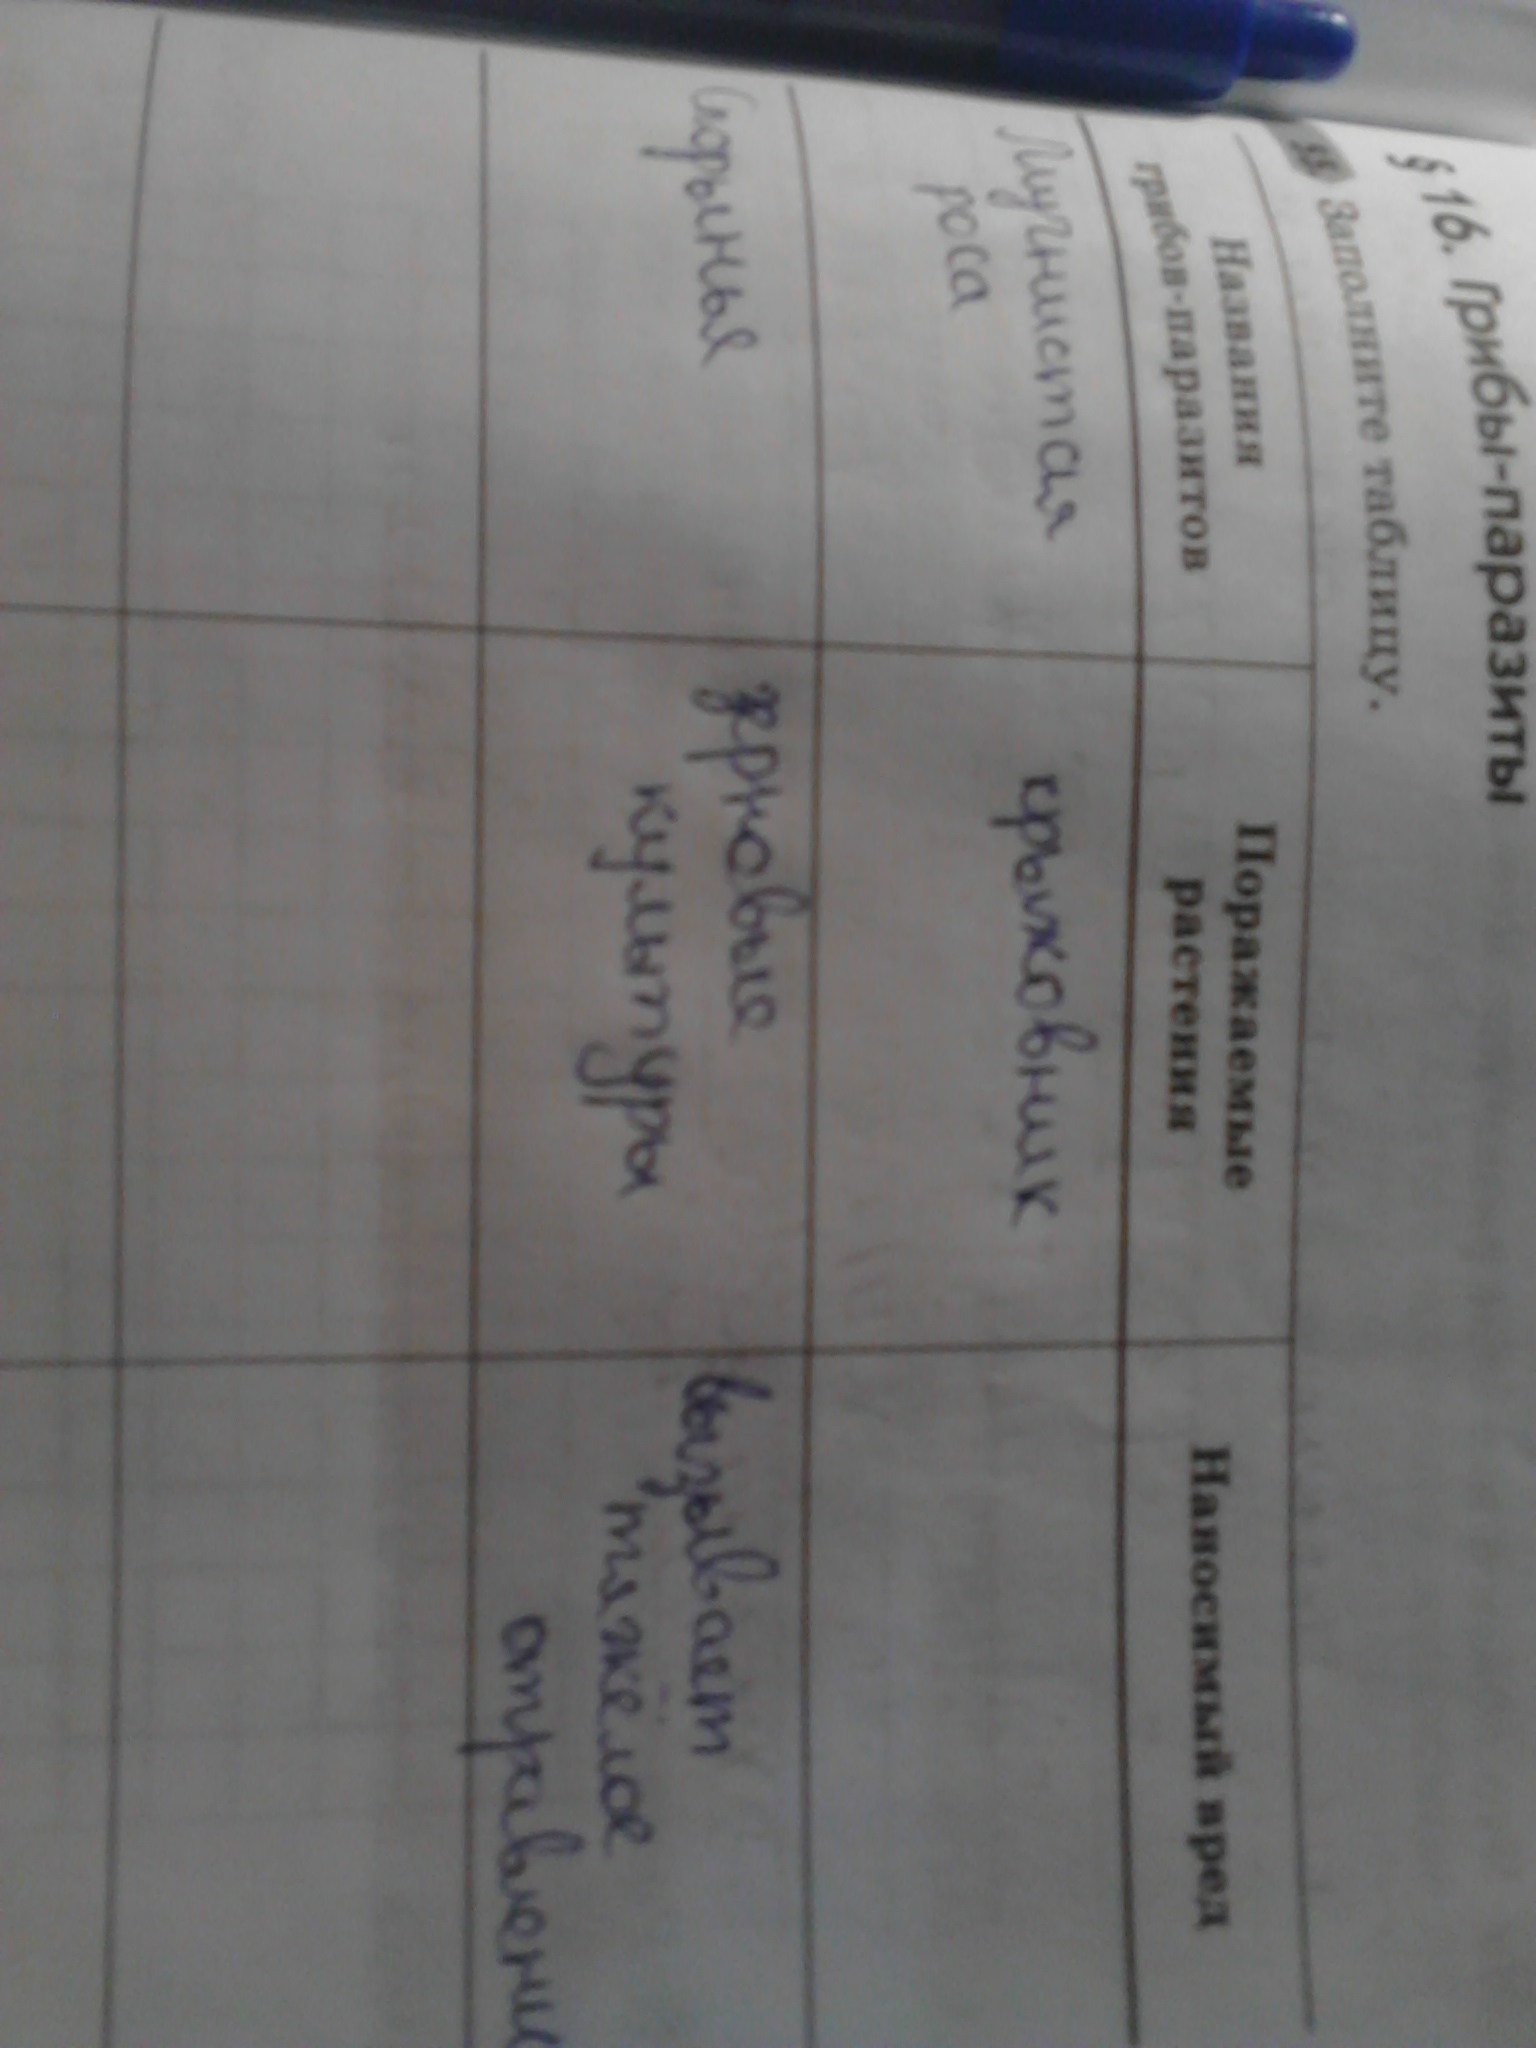 § 16. Грибы-паразиты
Заполните таблицу.
Названия
грибов-паразитов
Поражаемые
растения
Наносимый вред
Мучнистая
роса
крыжовник
зерновые
культуры
вызывает
тяжёлое